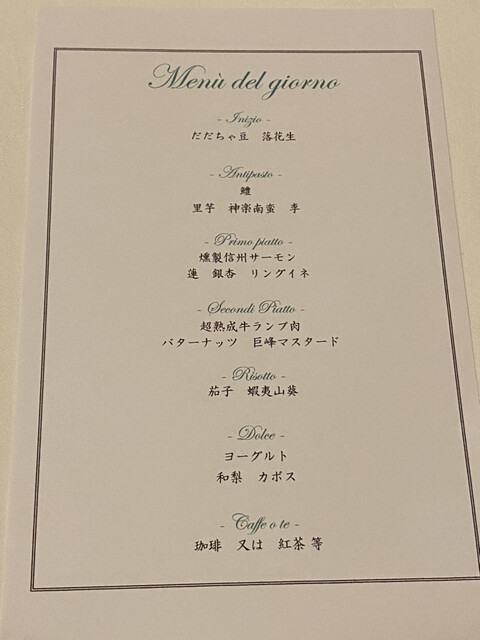 Menù del giorno
- Inizio -
だだちゃ豆　落花生
- Antipasto -
鱧
里芋　神楽南蛮　李
- Primo piatto -
燻製信州サーモン
蓮　銀杏　リングイネ
- Secondi Piatto -
超熟成牛ランプ肉
バターナッツ　巨峰マスタード
- Risotto -
茄子　蝦夷山葵
- Dolce -
ヨーグルト
和梨　カボス
- Caffe o te -
珈琲　又は　紅茶 等